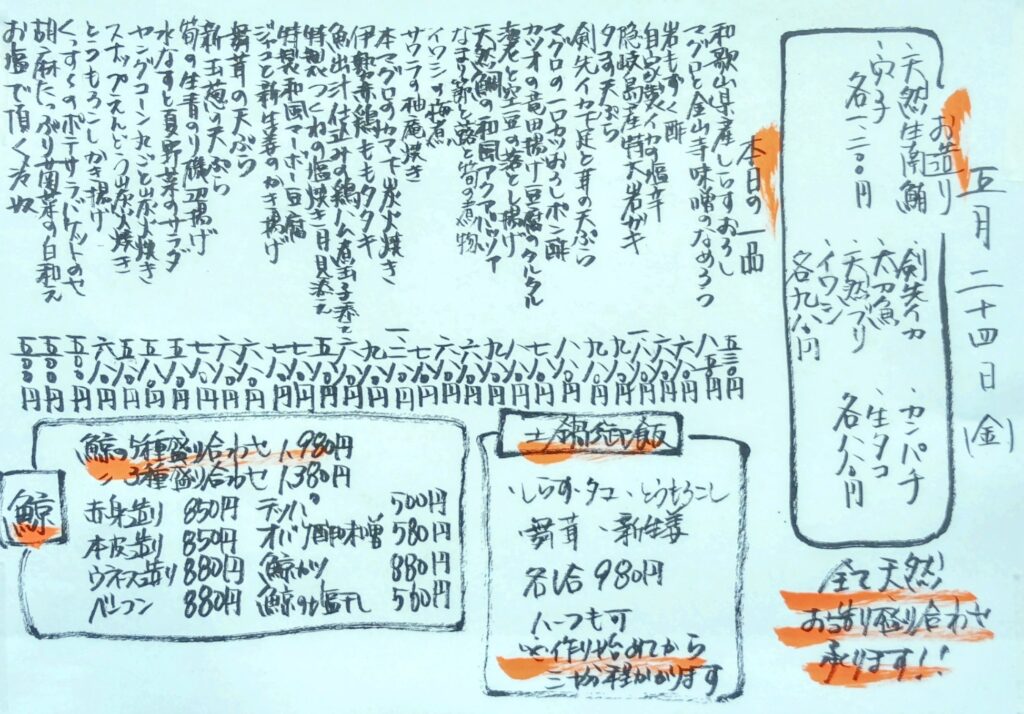 五月二十四日(金)
お造り
、天然生南鮪
、穴子
各一、二〇〇円
、剣先イカ
、太刀魚
、天然ブリ
、イワシ
各九八〇円
、カンパチ
、生タコ
各八八〇円
全て天然
お造り盛り合わせ
承ります!!
本日の一品
和歌山県産しらすおろし 五三〇円
マグロと金山寺味噌のなめろう 八五〇円
岩もずく酢 六八〇円
自家製イカの塩辛 六八〇円
隠岐島産特大岩ガキ
夕すの天ぷら 九八〇円
剣先イカ下足と茸の天ぷら 九八〇円
マグロの一口カツおろしポン酢 八八〇円
カツオの竜田揚げ豆腐のタルタル
海老と空豆の落とし揚げ 八八〇円
天然鯛の和風アクアパッツァ 九八〇円
なまり節と蕗と筍の煮物 六八〇円
イワシの梅煮 六八〇円
サワラの柚庵焼き 七八〇円
本マグロのカマ下炭火焼き
伊勢赤鶏ももタタキ 九八〇円
魚出汁仕込みの鶏ハム煮玉子添え 六八〇円
特製つくねの塩焼き目見添え 五八〇円
特製和風マーボー豆腐 七八〇円
ジャコと新生姜のかき揚げ 六八〇円
舞茸の天ぷら 六八〇円
新玉葱の天ぷら
筍の生青のり磯辺揚げ
水なすと夏野菜のサラダ
ヤングコーン丸ごと炭火焼き
スナップえんどう炭火焼き
とうもろこしかき揚げ 六八〇円
くっすらのポテサラバケットのせ
胡麻たっぷり茼蒿の白和え 五八〇円
お塩で頂く冷奴 五五〇円
土鍋御飯
、しらす、タコ、とうもろこし
、舞茸、新生姜
各1合 980円
ハーフも可
※作り始めてから
三十分程かかります
鯨
鯨の5種盛り合わせ 1,980円
〃 3種盛り合わせ 1,380円
赤身造り 850円 テッパ 500円
本皮造り 850円 オバケ酢味噌 580円
ウネス造り 880円 鯨カツ 880円
ベーコン 880円 鯨の塩干し 580円